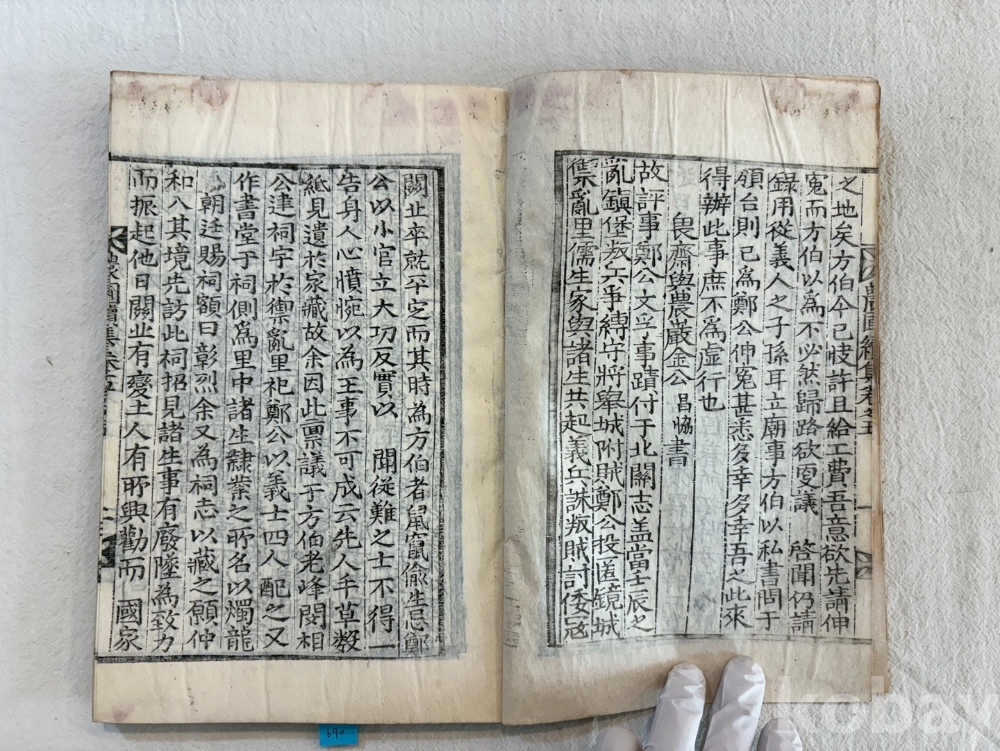 農圃續集卷之五
之地矣方伯今已快許且給工費吾意欲先請伸
冤而方伯以爲不必然歸路欲更議 啓聞仍請
錄用從義人之子孫耳立廟事方伯以私書問于
領台則已爲鄭公伸冤甚悉多幸多幸吾之此來
得辦此事庶不爲虛行也
畏齋與農巖金公昌協書
故評事鄭公文孚事蹟付于北關志盖當壬辰之
亂鎭堡叛兵爭縛守將擧城附賊鄭公投匿鏡城
禦亂里儒生家與諸生共起義兵誅叛賊討倭寇
關北卒就平定而其時爲方伯者鼠竄偸生忌鄭
公以小官立大功反實以 聞從難之士不得一
告身人心憤惋以爲王事不可成云先人手草數
紙見遺於家藏故余因此禀議于方伯老峰閔相
公建祠宇於禦亂里祀鄭公以義士四人配之又
作書堂于祠側爲里中諸生隷業之所名以燭龍
朝廷賜祠額曰彰烈余又爲祠志以藏之願仲
和入其境先訪此祠招見諸生事有廢墜爲致力
而振起他日關北有變土人有所興勸而 國家
農圃續集卷之五
kobay